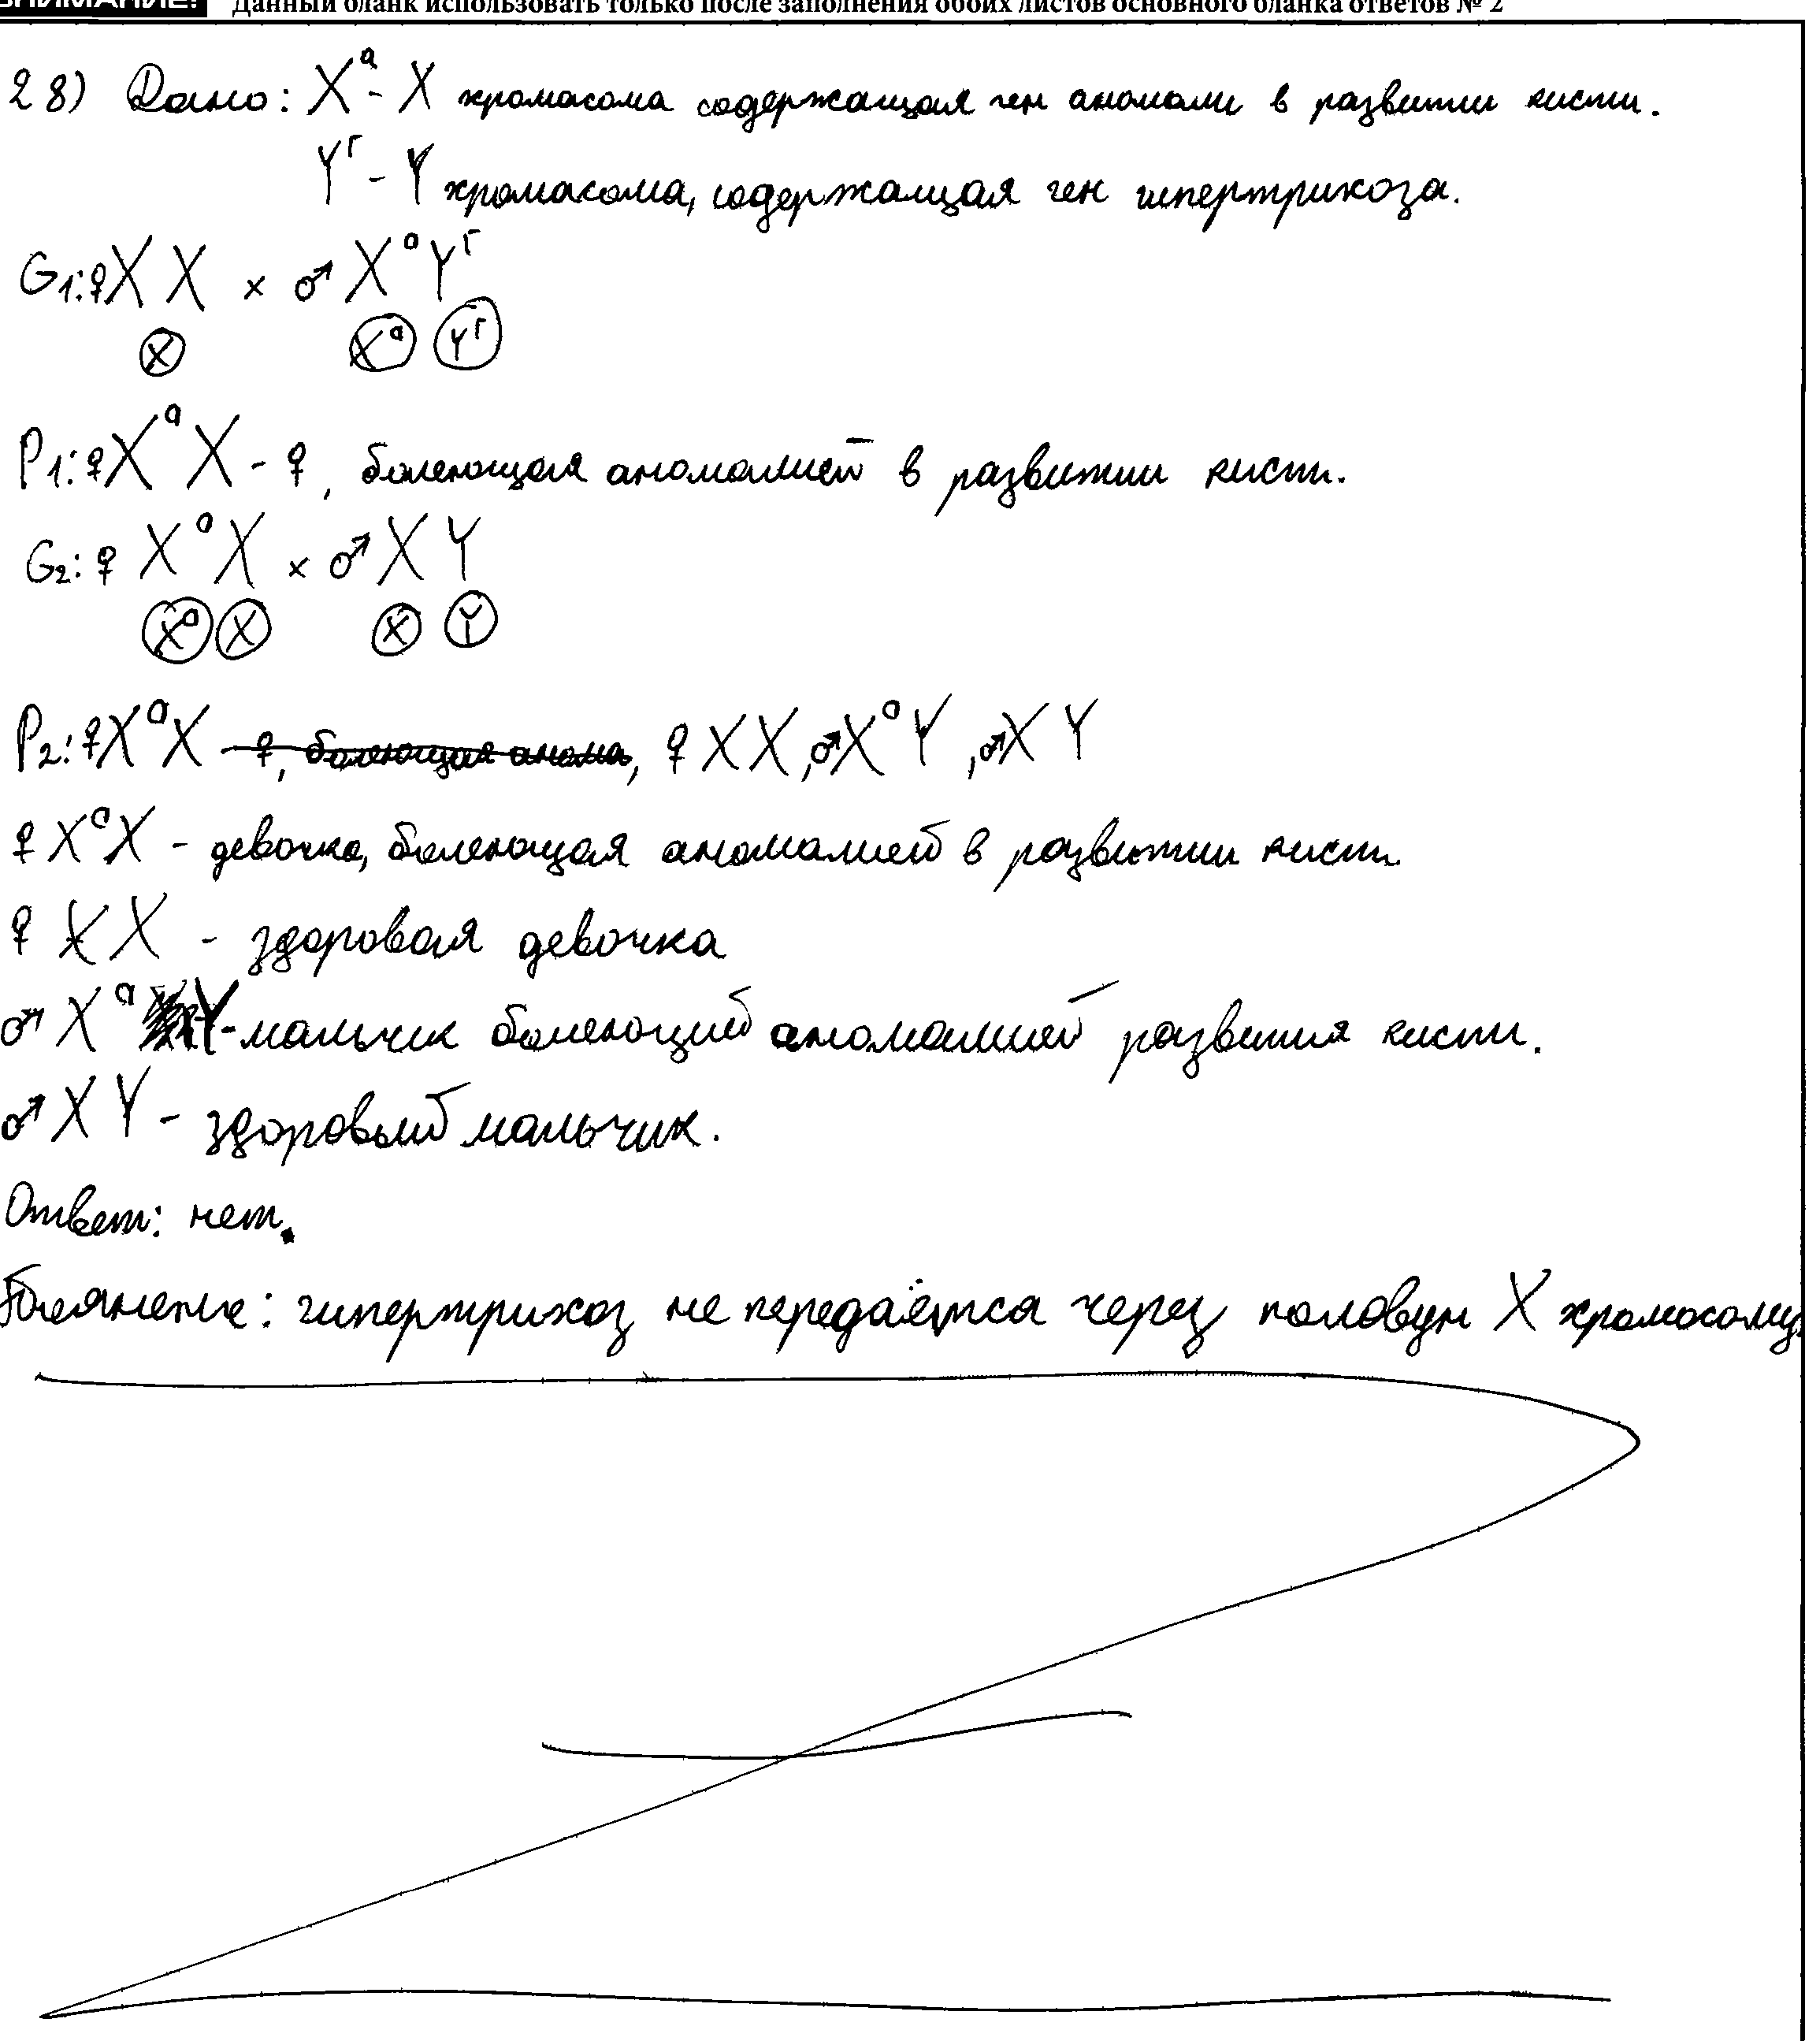 ВНИМАНИЕ! Данный бланк использовать только после заполнения обоих листов основного бланка ответов № 2
28) Дано: Xᵃ - X хромасома содержащая ген аномали в развитии кисти.
Yᴦ - Y хромасома, содержащая ген гипертрихоза.
G₁: ♀ X X × ♂ XᵃYᴦ
X Xᵃ Yᴦ
P₁: ♀ XᵃX - ♀, болеющая аномалией в развитии кисти.
G₂: ♀ XᵃX × ♂ X Y
Xᵃ X X Y
P₂: ♀ XᵃX - ♀, болеющая анома, ♀ XX, ♂ XᵃY, ♂ XY
♀ XᵃX - девочка, болеющая аномалией в развитии кисти.
♀ XX - здоровая девочка
♂ XᵃY - мальчик болеющий аномалией развития кисти.
♂ XY - здоровый мальчик.
Ответ: нет.
гипертрихоз не передаётся через половун X хромосому.